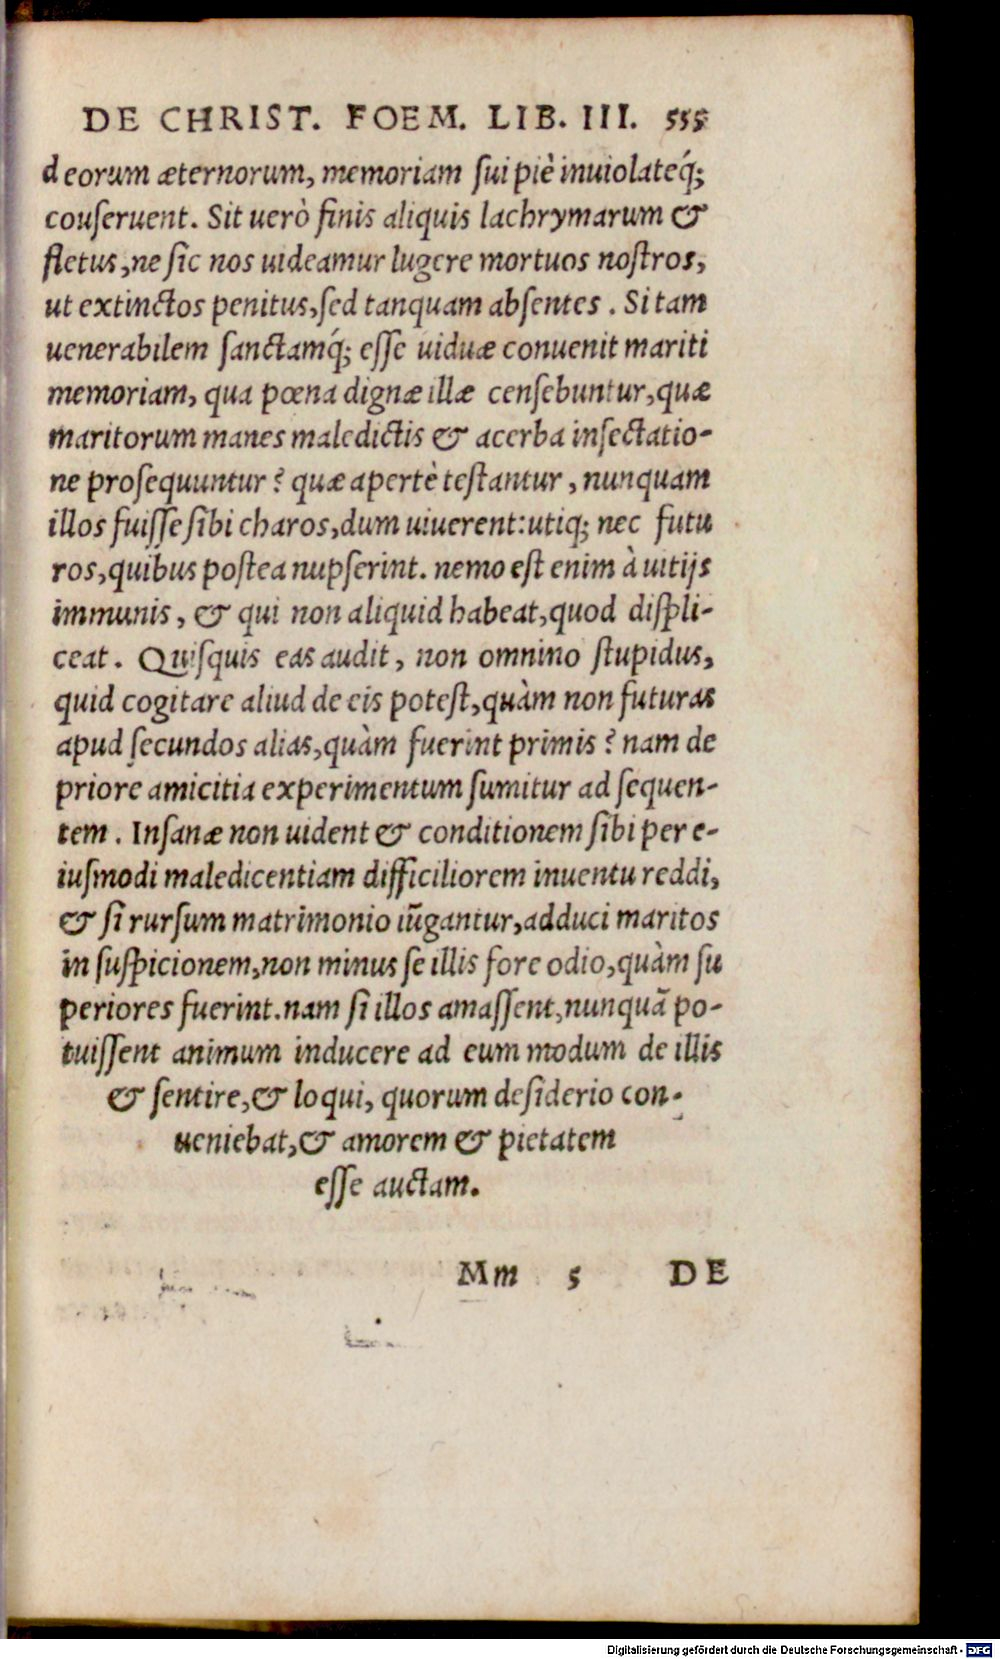 DE CHRIST. FOEM. LIB. III. 555
deorum æternorum, memoriam sui piè inuiolateq́;
couseruent. Sit uerò finis aliquis lachrymarum &
fletus, ne sic nos uideamur lugere mortuos nostros,
ut extinctos penitus, sed tanquam absentes. Si tam
uenerabilem sanctamq́; esse uiduæ conuenit mariti
memoriam, qua pœna dignæ illæ censebuntur, quæ
maritorum manes maledictis & acerba insectatio-
ne prosequuntur? quæ apertè testantur, nunquam
illos fuisse sibi charos, dum uiuerent: utiq; nec futu
ros, quibus postea nupserint. nemo est enim à uitijs
immunis, & qui non aliquid habeat, quod displi-
ceat. Quisquis eas audit, non omnino stupidus,
quid cogitare aliud de eis potest, quàm non futuras
apud secundos alias, quàm fuerint primis? nam de
priore amicitia experimentum sumitur ad sequen-
tem. Insanæ non uident & conditionem sibi per e-
iusmodi maledicentiam difficiliorem inuentu reddi,
& si rursum matrimonio iũgantur, adduci maritos
in suspicionem, non minus se illis fore odio, quàm su
periores fuerint. nam si illos amassent, nunquã po-
tuissent animum inducere ad eum modum de illis
& sentire, & loqui, quorum desiderio con-
ueniebat, & amorem & pietatem
esse auctam.
Mm 5 DE
Digitalisierung gefördert durch die Deutsche Forschungsgemeinschaft - DFG